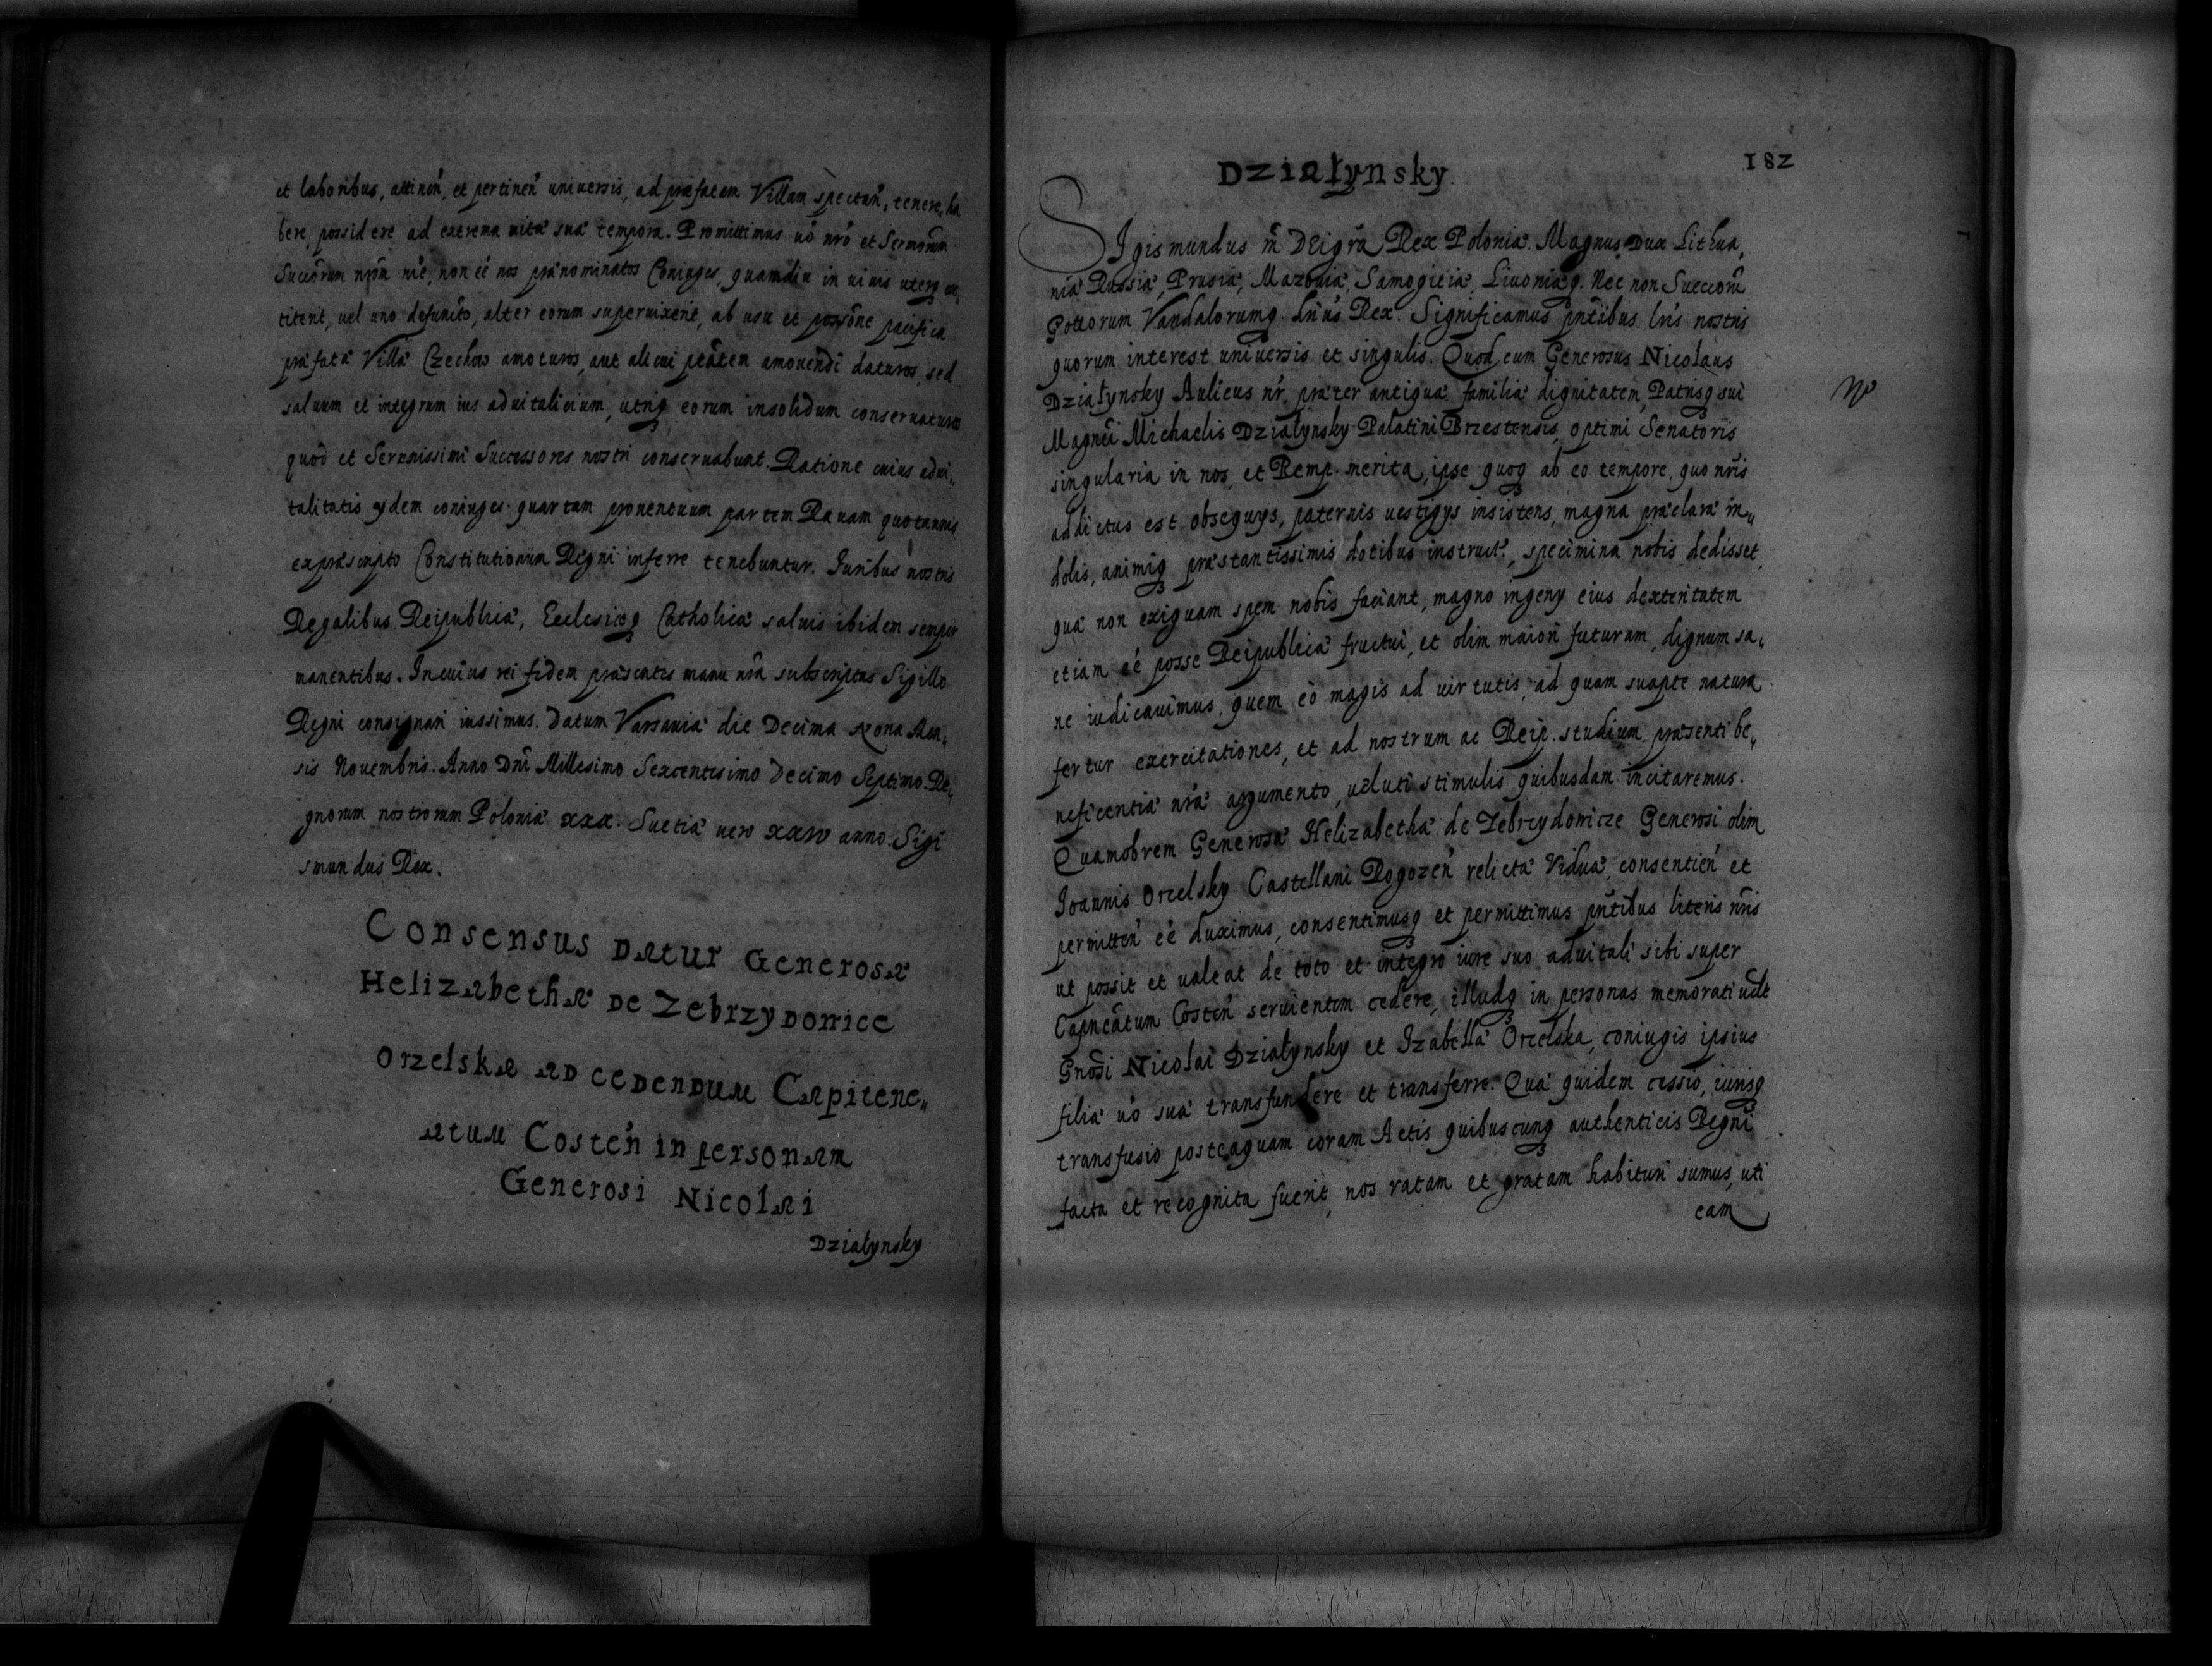 et laboribus, attinen̄, et pertinen̄ uniuersis, ad præfatam Villam spectan̄, tenere, ha
bere, possidere ad extrema uitæ suæ tempora. Promittimus uō nrō et Sermorum
Succōrum nrōm nīe, non eē nos prænominatos Coniuges, quamdiu in uiuis uterq ex„
titerit, uel uno defuncto, alter eorum superuixerit, ab usu et possōne pacifica
præfatæ Villæ Czechow amoturos, aut alicui ptātem amouendi daturos, sed
saluum et integrum ius aduitalicium, utriq eorum insolidum conseruaturos
quod et Serenissimi Successores nostri conseruabunt. Ratione cuius adui„
talitatis ijdem coniuges quartam prouentuum partem Rauam quotannis
expræscripto Constitutionum Regni inferre tenebuntur. Iuribus nostris
Regalibus Reipublicæ, Ecclesiæq Catholicæ saluis ibidem semper
manentibus. Incuius rei fidem præsentes manu nrā subscriptas Sigillo
Regni consignari iussimus. Datum Varsauiæ die Decima Nona Men„
sis Nouembris. Anno Dnī Millesimo Sexcentesimo Decimo Septimo. Re„
gnorum nostrorum Poloniæ xxx. Suetiæ uero xxiv anno. Sigi
smundus Rex.
Consensus datur Generosæ
Helizabethæ de Zebrzydowice
Orzelska ad cedendum Capitene„
atum Costen̄ in personam
Generosi Nicolai
Działynsky
Działynsky. 182
SIgismundus III DEigrā Rex Poloniæ. Magnus Dux Lithua„
niæ Russiæ, Prusiæ, Mazouiæ, Samogitiæ, Liuoniæq. Nec non Suecorū
Gottorum Vandalorumq. hr̄us Rex. Significamus pn̄tibus lr̄is nostris
quorum interest uniuersis et singulis. Quod cum Generosus Nicolaus
Działynsky Aulicus nr̄, præter antiquæ familiæ dignitatem, Patrisq sui
Magnci Michaelis Działynsky Palatini Brzestensis, optimi Senatoris
singularia in nos, et Remp. merita, ipse quoq ab eo tempore, quo nr̄is
addictus est obsequys, paternis uestigys insistens, magna præclaræ in„
dolis, animiq præstantissimis dotibus instructi, specimina nobis dedisset,
quæ non exiguam spem nobis faciant, magno ingeny eius dexteritatem
etiam eē posse Reipublicæ fructui, et olim maiori futuram, dignum sa„
ne iudicauimus, quem eò magis ad uirtutis, ad quam suapte natura
fertur exercitationes, et ad nostrum ac Reip. studium præsenti be„
neficentiæ nræ argumento, ueluti stimulis quibusdam incitaremus.
Quamobrem Generosæ Helizabethæ de Zebrzydowicze Generosi olim
Ioannis Orzelsky Castellani Rogozen̄ relictæ Viduæ, consentien̄ et
permitten̄ eē duximus, consentimusq et permittimus pn̄tibus literis nr̄is
ut possit et ualeat de toto et integro iure suo aduitali sibi super
Capneātum Costen̄ seruientem cedere, illudq in personas memorati uēlt
Gnosi Nicolai Działynsky et Izabellæ Orzelska, coniugis ipsius
filiæ uō suæ transfundere et transferre. Quæ quidem cessio, iurisq
transfusio posteaquam coram Actis quibuscunq authenticis Regni
facta et recognita fuerit, nos ratam et gratam habituri sumus, uti
eam